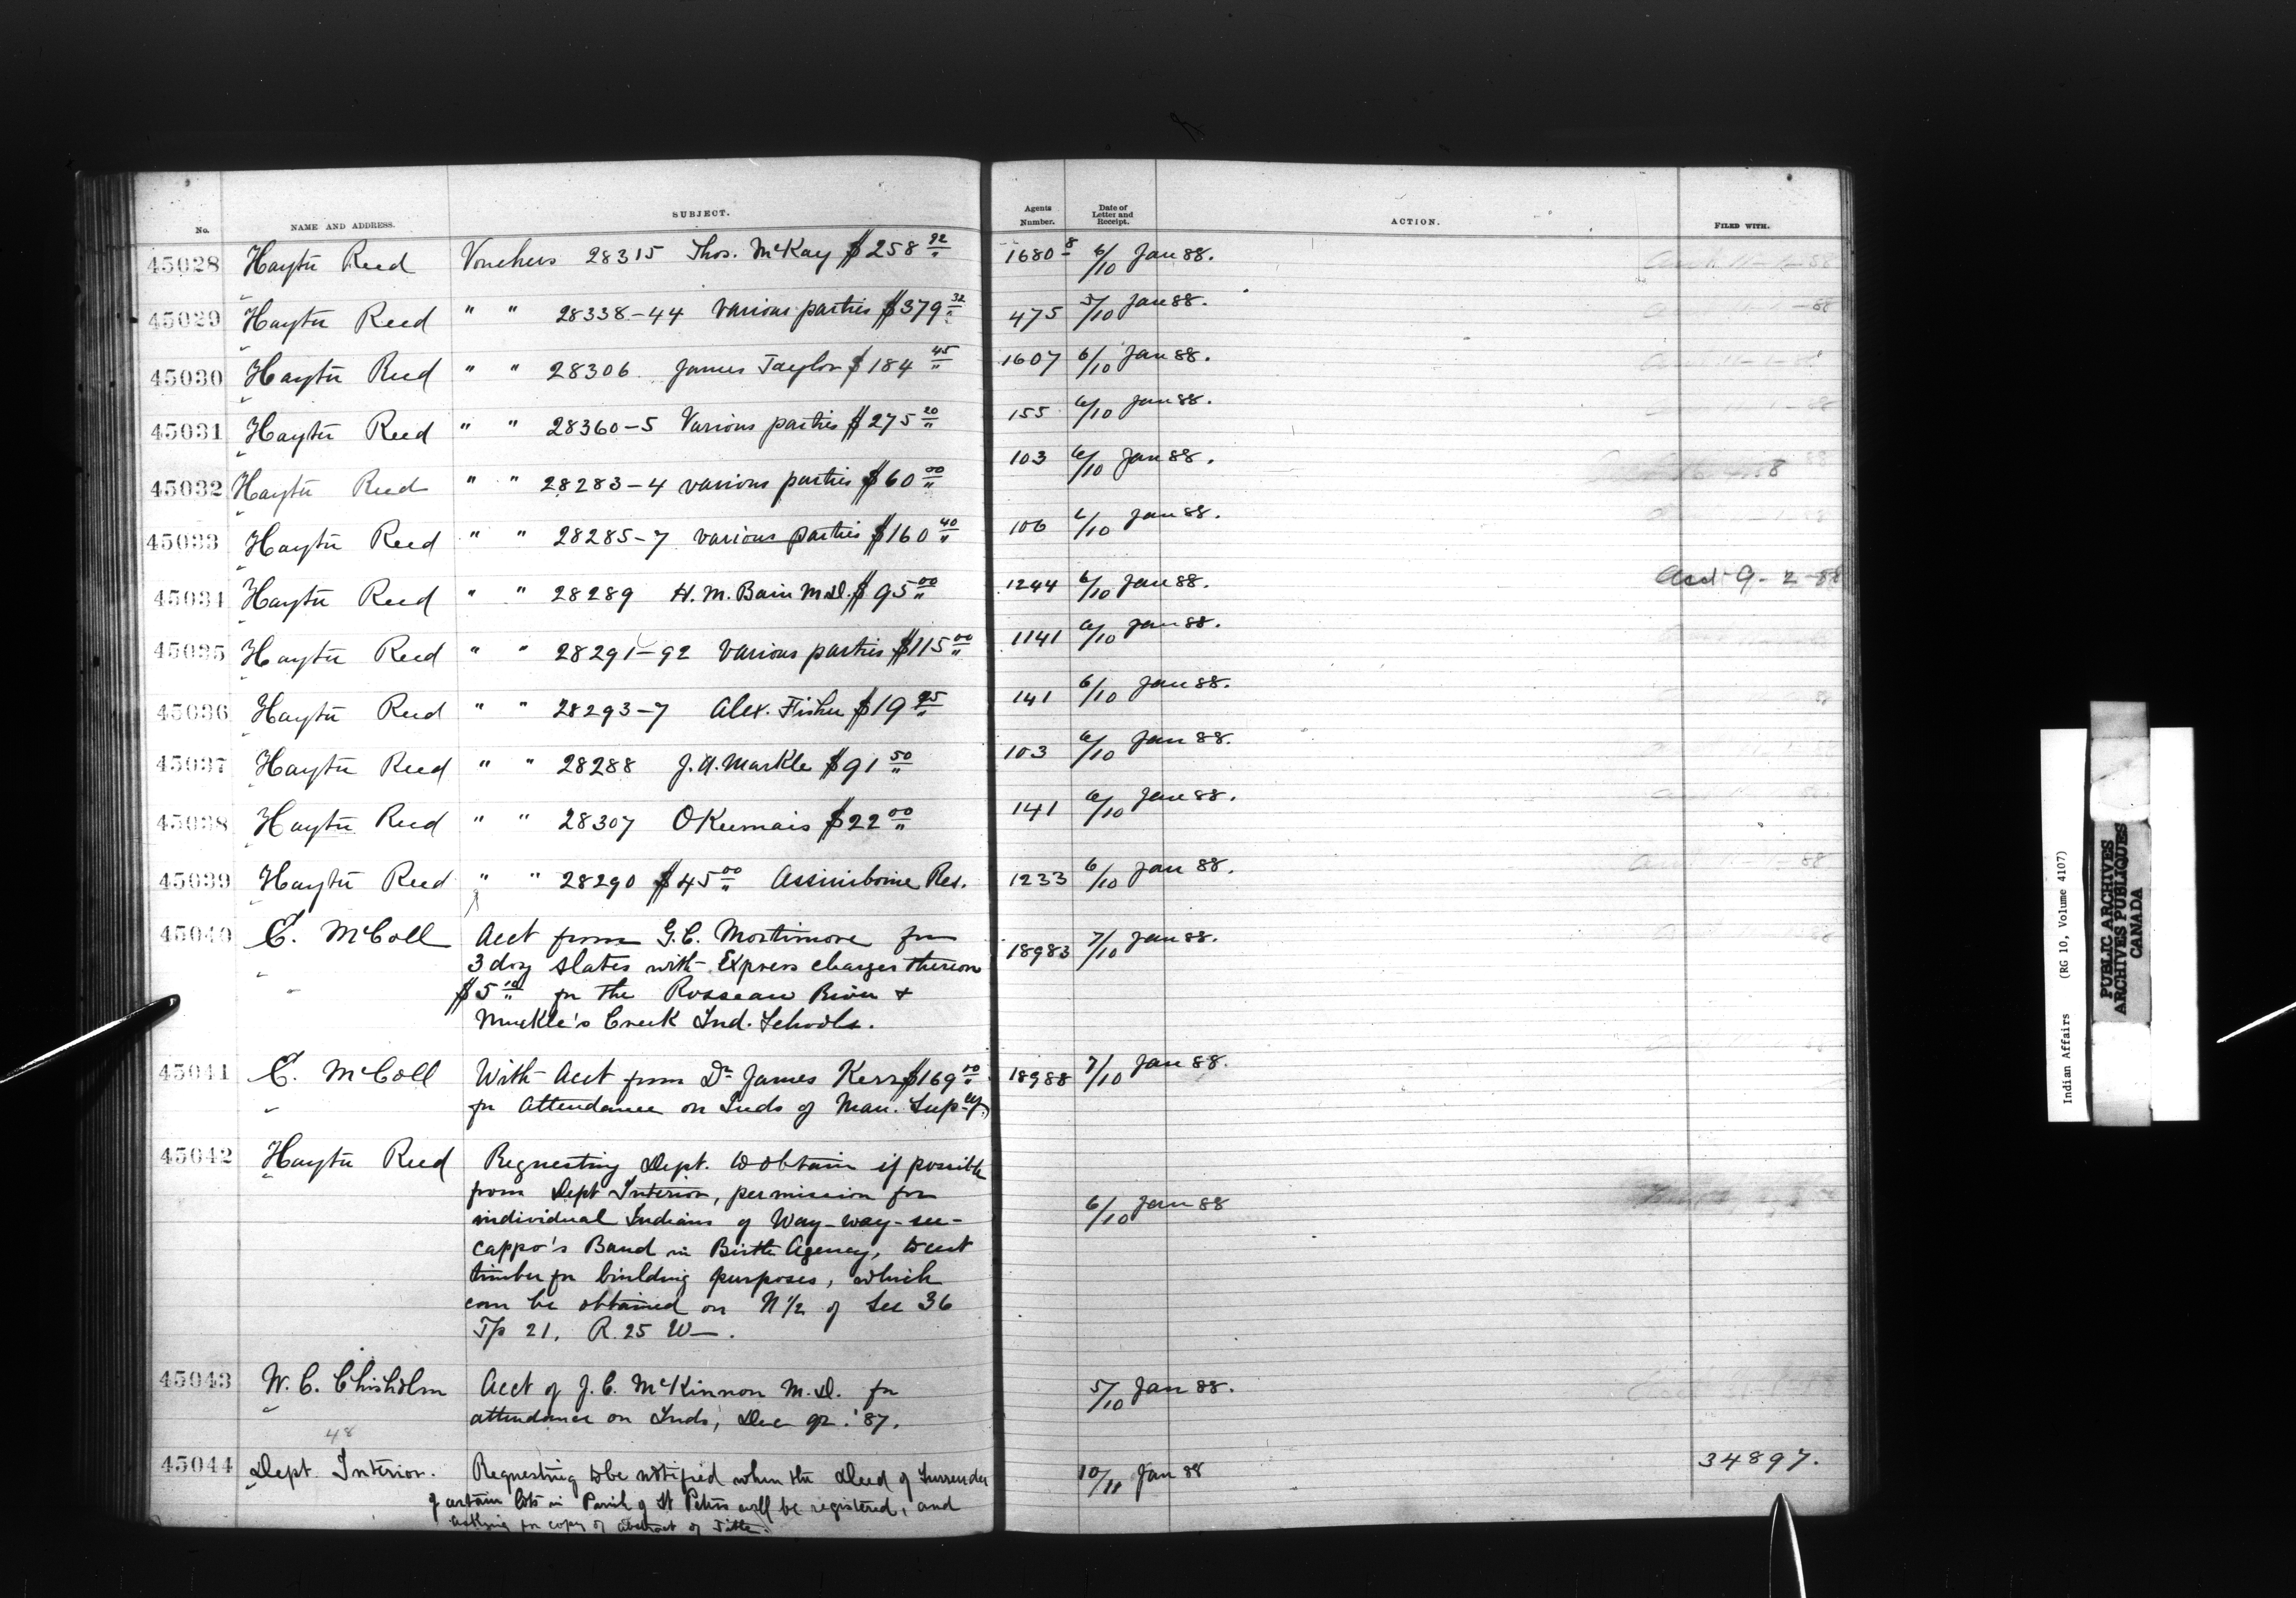 No. NAME AND ADDRESS. SUBJECT. Agents Number. Date of Letter and Receipt. ACTION. FILED WITH.
45028 Hayter Reed Vouchers 28315 Thos. McKay $258 92 1680 8 6/10 Jan 88.
45029 Hayter Reed " " 28338-44 various parties $379 32 475 5/10 Jan 88.
45030 Hayter Reed " " 28306 James Taylor $184 45 1607 6/10 Jan 88.
45031 Hayter Reed " " 28360-5 Various parties $275 20 155 6/10 Jan 88.
45032 Hayter Reed " " 28283-4 various parties $60 00 103 6/10 Jan 88.
45033 Hayter Reed " " 28285-7 various parties $160 40 106 6/10 Jan 88.
45034 Hayter Reed " " 28289 H. M. Bain M.D. $95 00 1244 6/10 Jan 88. 9-2-88
45035 Hayter Reed " " 28291-92 various parties $115 00 1141 6/10 Jan 88.
45036 Hayter Reed " " 28293-7 Alex. Fisher $19 141 6/10 Jan 88.
45037 Hayter Reed " " 28288 J. A. Markle $91 50 103 6/10 Jan 88.
45038 Hayter Reed " " 28307 OKeemais $22 00 141 6/10 Jan 88.
45039 Hayter Reed " " 28290 $45 00 Assiniboine Res. 1233 6/10 Jan 88.
45040 E. McColl Acct from G. C. Mortimore for 18983 7/10 Jan 88.
3 doz slates with Express charges thereon
$5 10 for the Rosseau River &
Muckle's Creek Ind. Schools.
45041 E. McColl With Acct from Dr James Kerr $169 18988 7/10 Jan 88.
for Attendance on Inds of Man. Supcy.
45042 Hayter Reed Requesting Dept. to obtain if possible
from Dept Interior, permission for 6/10 Jan 88
individual Indians of Way-way-see-
cappo's Band in Birtle Agency, to cut
timber for building purposes, which
can be obtained on N 1/2 of Sec 36
Tp 21, R. 25 W.
45043 W. C. Chisholm Acct of J. C. McKinnon M.D. for 5/10 Jan 88.
attendance on Inds, Dec qr. '87.
48
45044 Dept. Interior. Requesting to be notified when the Deed of Surrender 10/11 Jan 88 34897.
of certain lots in Parish of St Peters will be registered, and
asking for copy of abstract of Title.
Indian Affairs (RG 10, Volume 4107)
PUBLIC ARCHIVES
ARCHIVES PUBLIQUES
CANADA